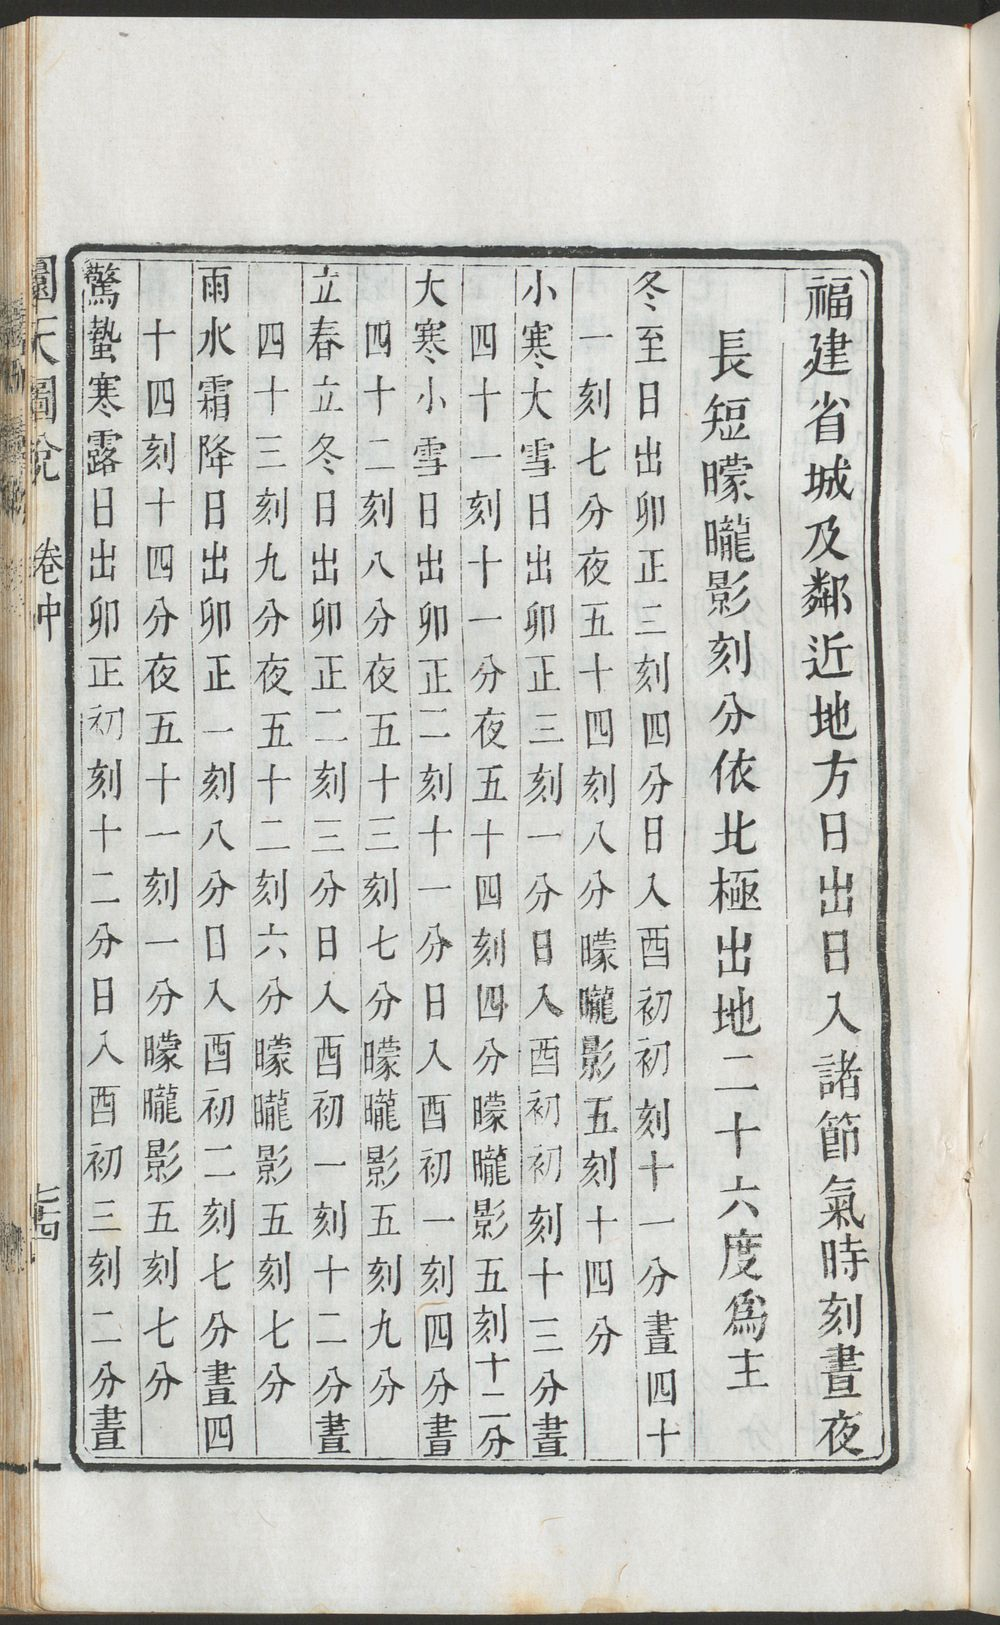 福建省城及鄰近地方日出日入諸節氣時刻晝夜
長短曚曨影刻分依北極出地二十六度爲主
冬至日出卯正三刻四分日入酉初初刻十一分晝四十
一刻七分夜五十四刻八分曚曨影五刻十四分
小寒大雪日出卯正三刻一分日入酉初初刻十三分晝
四十一刻十一分夜五十四刻四分曚曨影五刻十二分
大寒小雪日出卯正二刻十一分日入酉初一刻四分晝
四十二刻八分夜五十三刻七分曚曨影五刻九分
立春立冬日出卯正二刻三分日入酉初一刻十二分晝
四十三刻九分夜五十二刻六分曚曨影五刻七分
雨水霜降日出卯正一刻八分日入酉初二刻七分晝四
十四刻十四分夜五十一刻一分曚曨影五刻七分
驚蟄寒露日出卯正初刻十二分日入酉初三刻二分晝
圜天圖說 卷中 七四